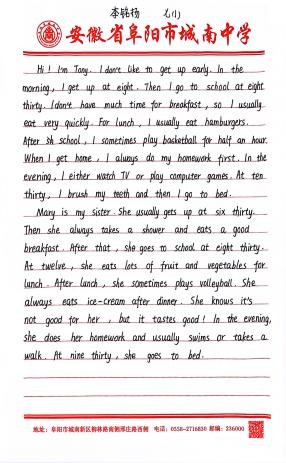 李铭杨 七(1)
安徽省阜阳市城南中学
Hi! I'm Tony. I don't like to get up early. In the
morning, I get up at eight. Then I go to school at eight
thirty. I don't have much time for breakfast, so I usually
eat very quickly. For lunch, I usually eat hamburgers.
After sh school, I sometimes play basketball for half an hour.
When I get home, I always do my homework first. In the
evening, I either watch TV or play computer games. At ten
thirty, I brush my teeth and then I go to bed.
Mary is my sister. She usually gets up at six thirty.
Then she always takes a shower and eats a good
breakfast. After that, she goes to school at eight thirty.
At twelve, she eats lots of fruit and vegetables for
lunch. After lunch, she sometimes plays volleyball. She
always eats ice-cream after dinner. She knows it's
not good for her, but it tastes good! In the evening,
she does her homework and usually swims or takes a
walk. At nine thirty, she goes to bed.
地址:阜阳市城南新区柳林路南侧邢庄路西侧 电话:0558-2716830 邮编:236000